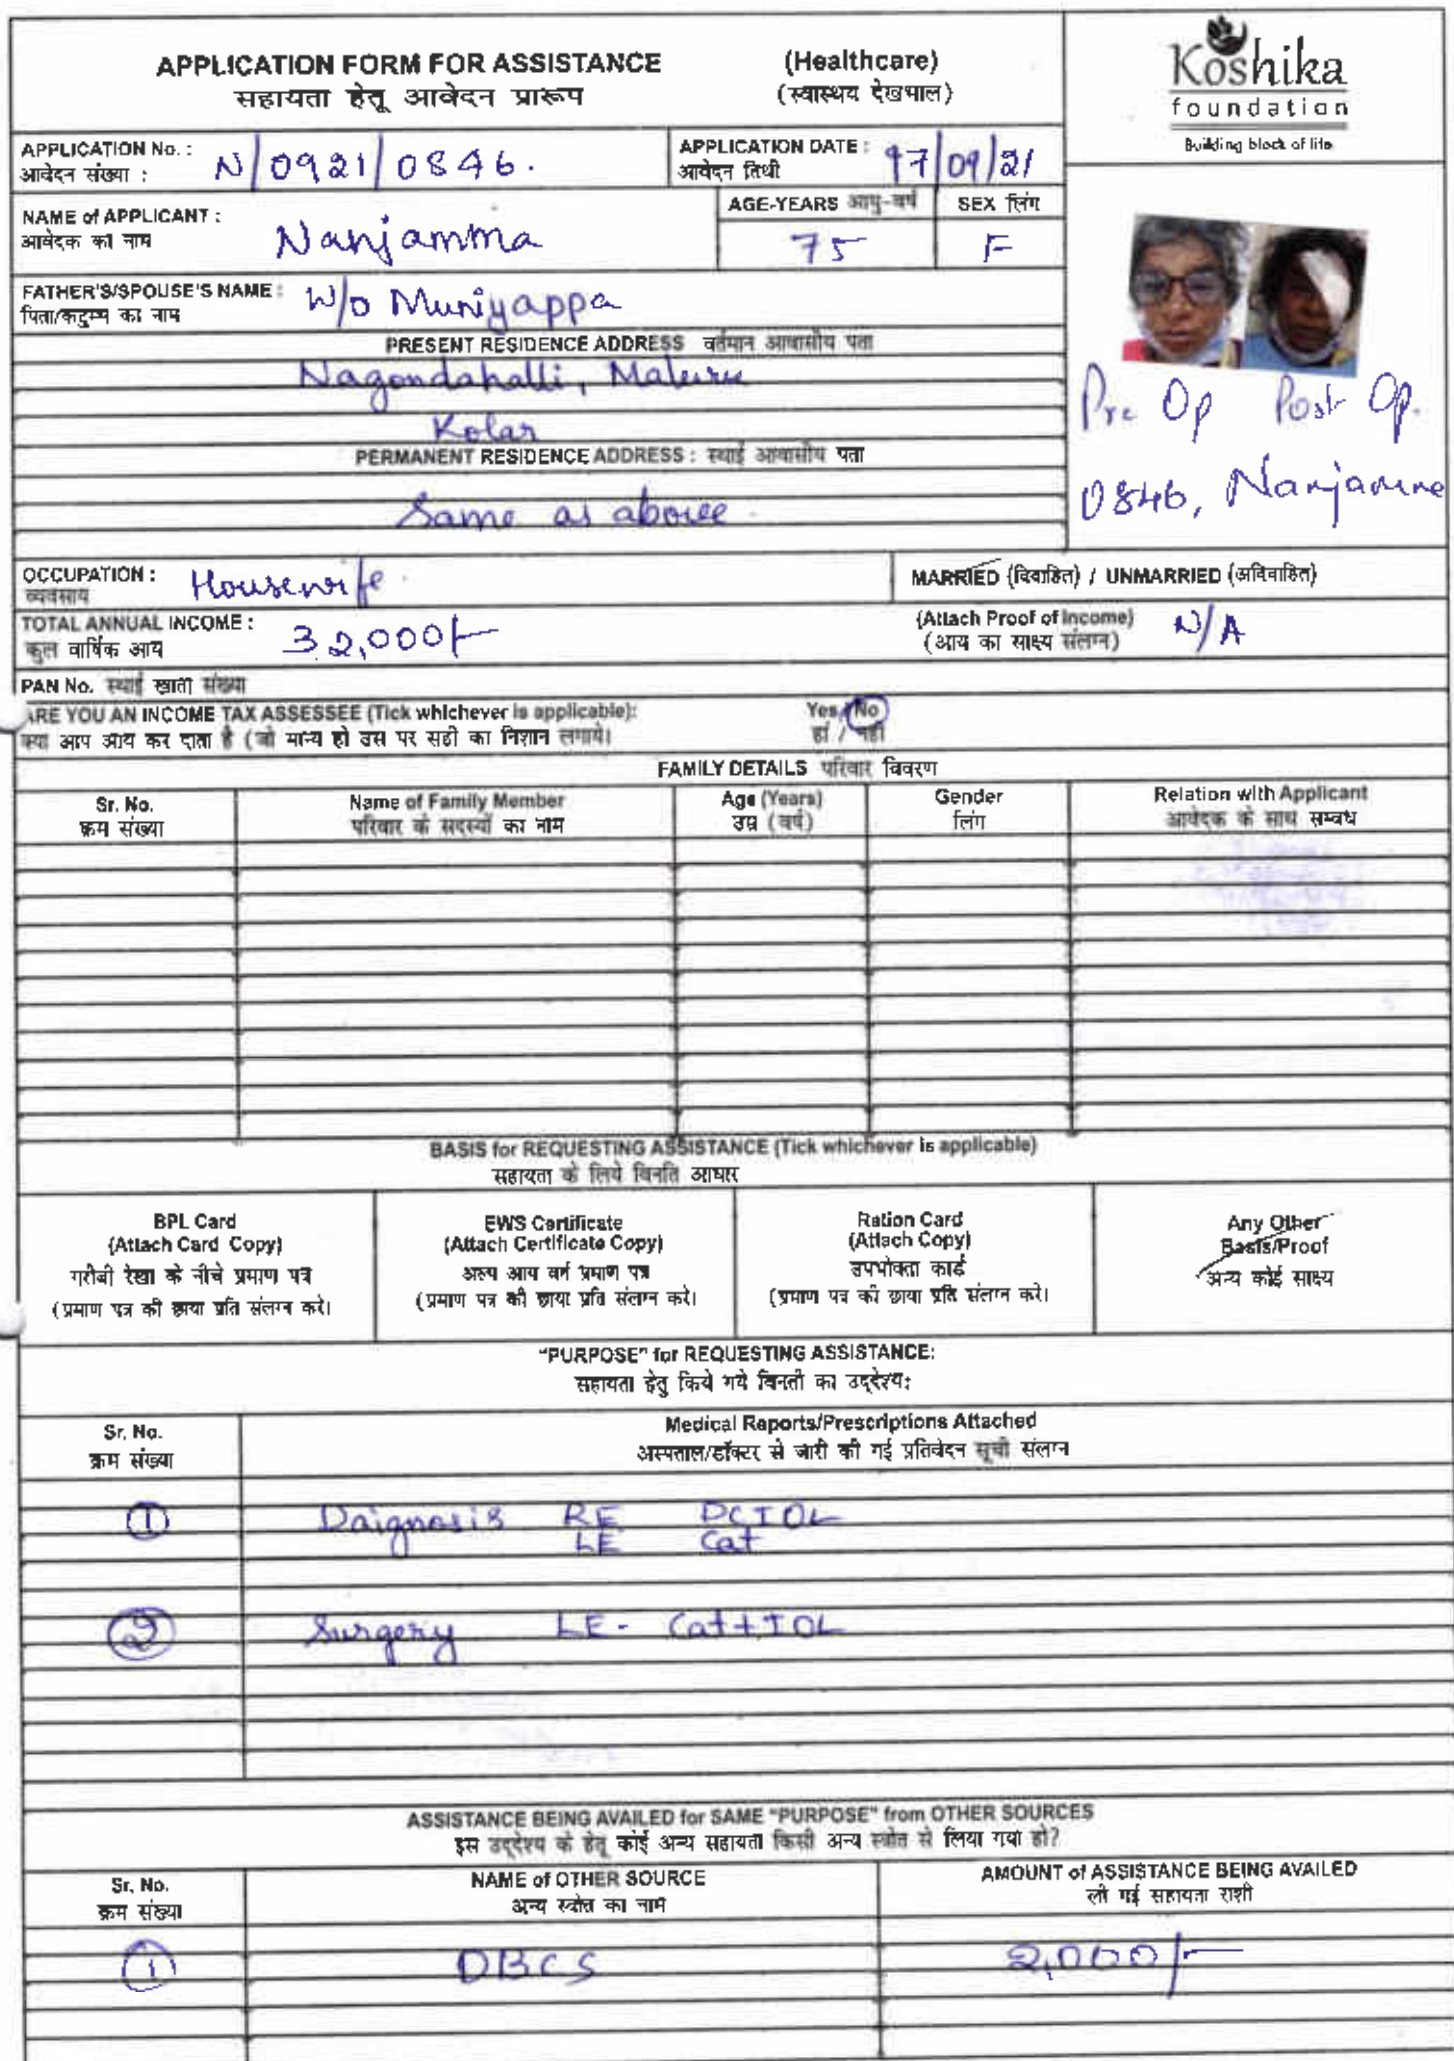 APPLICATION FORM FOR ASSISTANCE (Healthcare)
सहायता हेतू आवेदन प्रारूप (स्वास्थय देखभाल)
Koshika
foundation
Building block of life
APPLICATION No. : N/0921/0846.
आवेदन संख्या :
APPLICATION DATE : 17/09/21
आवेदन तिथी
NAME of APPLICANT : Nanjamma
आवेदक का नाम
AGE-YEARS आयु-वर्ष
75
SEX लिंग
F
FATHER'S/SPOUSE'S NAME : W/o Muniyappa
पिता/कटुम्प का नाम
PRESENT RESIDENCE ADDRESS वर्तमान आवासीय पता
Nagondahalli, Maluru
Kolar
PERMANENT RESIDENCE ADDRESS : स्थाई आवासीय पता
Same as above.
Pre Op Post Op.
0846, Nanjamma
OCCUPATION : Housewife
व्यवसाय
MARRIED (विवाहित) / UNMARRIED (अविवाहित)
TOTAL ANNUAL INCOME : 32,000/-
कुल वार्षिक आय
(Attach Proof of Income) N/A
(आय का साक्ष्य संलग्न)
PAN No. स्थाई खाती संख्या
ARE YOU AN INCOME TAX ASSESSEE (Tick whichever is applicable): Yes/No
क्या आप आय कर दाता है (जो मान्य हो उस पर सही का निशान लगाये। हां / नही
FAMILY DETAILS परिवार विवरण
Sr. No. Name of Family Member Age (Years) Gender Relation with Applicant
क्रम संख्या परिवार के सदस्यों का नाम उम्र (वर्ष) लिंग आवेदक के साथ सम्बंध
BASIS for REQUESTING ASSISTANCE (Tick whichever is applicable)
सहायता के लिये विनति आधार
BPL Card
(Attach Card Copy)
गरीबी रेखा के नीचे प्रमाण पत्र
(प्रमाण पत्र की छाया प्रति संलग्न करे।
EWS Certificate
(Attach Certificate Copy)
अल्प आय वर्ग प्रमाण पत्र
(प्रमाण पत्र की छाया प्रति संलग्न करे।
Ration Card
(Attach Copy)
उपभोक्ता कार्ड
(प्रमाण पत्र की छाया प्रति संलग्न करे।
Any Other
Basis/Proof
अन्य कोई साक्ष्य
"PURPOSE" for REQUESTING ASSISTANCE:
सहायता हेतु किये गये विनती का उद्देश्य:
Sr. No. Medical Reports/Prescriptions Attached
क्रम संख्या अस्पताल/डॉक्टर से जारी की गई प्रतिवेदन सूची संलग्न
1 Daignosis RE PCIOL
LE Cat
2 Surgery LE - Cat+IOL
ASSISTANCE BEING AVAILED for SAME "PURPOSE" from OTHER SOURCES
इस उद्देश्य के हेतू कोई अन्य सहायता किसी अन्य स्त्रोत से लिया गया हो?
Sr. No. NAME of OTHER SOURCE AMOUNT of ASSISTANCE BEING AVAILED
क्रम संख्या अन्य स्त्रोत का नाम ली गई सहायता राशी
1 DBCS 2,000/-